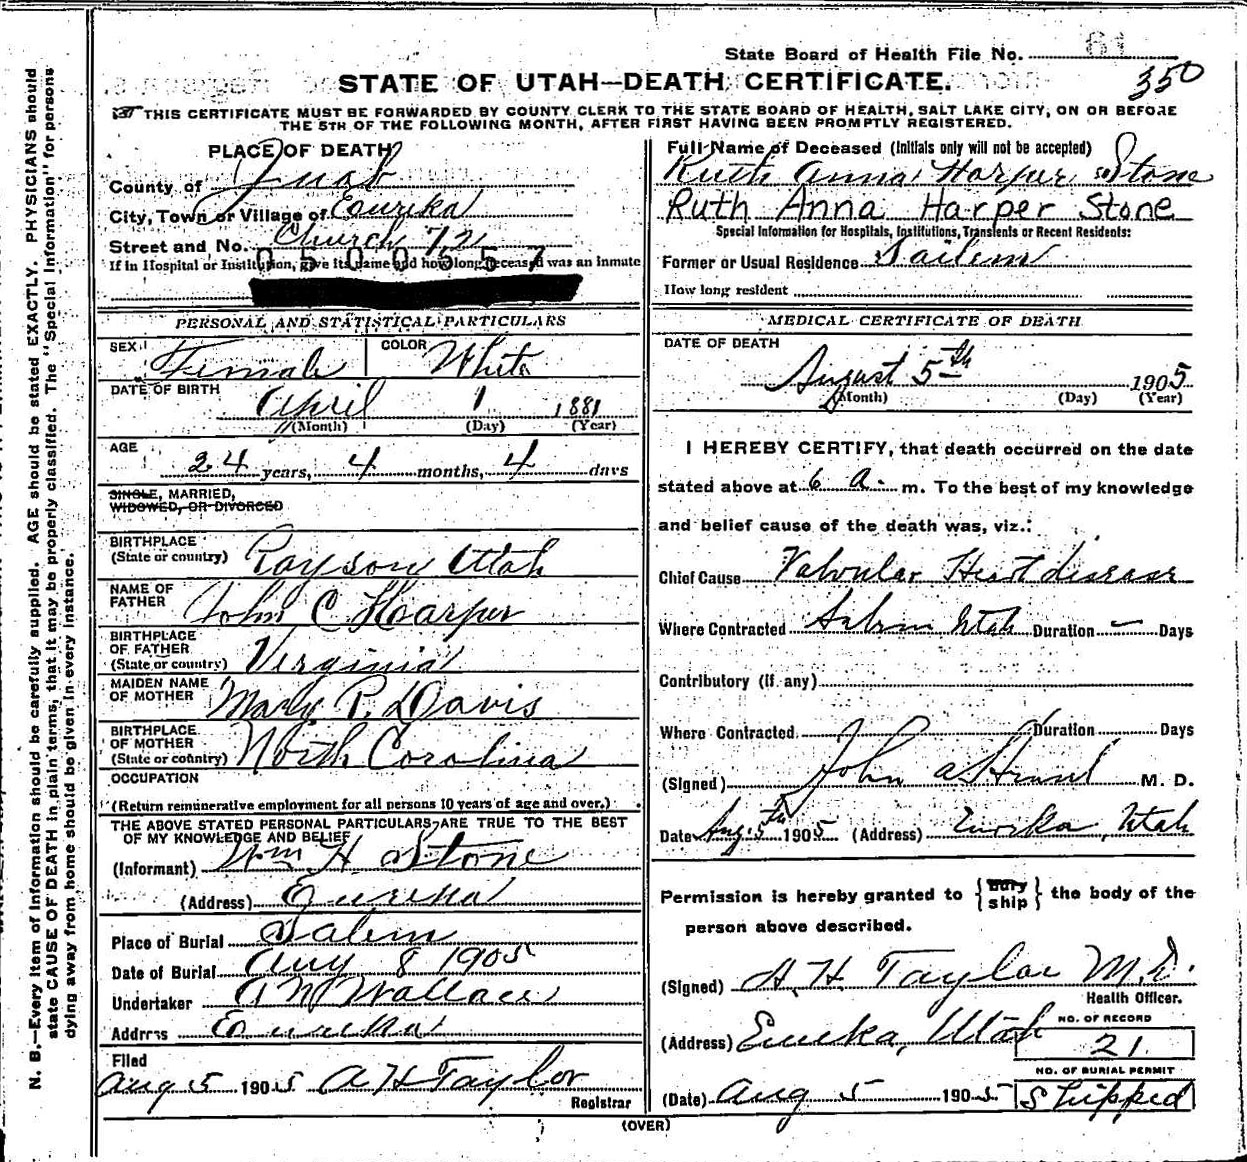 State Board of Health File No. 61
350
STATE OF UTAH—DEATH CERTIFICATE.
THIS CERTIFICATE MUST BE FORWARDED BY COUNTY CLERK TO THE STATE BOARD OF HEALTH, SALT LAKE CITY, ON OR BEFORE
THE 5TH OF THE FOLLOWING MONTH, AFTER FIRST HAVING BEEN PROMPTLY REGISTERED.
PLACE OF DEATH
County of Juab
City, Town or Village of Eureka
Street and No. Church 72
0500557
If in Hospital or Institution, give its name and how long deceased was an inmate
PERSONAL AND STATISTICAL PARTICULARS
SEX Female COLOR White
DATE OF BIRTH
April 1 1881
(Month) (Day) (Year)
AGE
24 years, 4 months, 4 days
SINGLE, MARRIED,
WIDOWED, OR DIVORCED
BIRTHPLACE
(State or country) Payson Utah
NAME OF
FATHER John C Harper
BIRTHPLACE
OF FATHER
(State or country) Virginia
MAIDEN NAME
OF MOTHER Mary P. Davis
BIRTHPLACE
OF MOTHER
(State or country) North Carolina
OCCUPATION
(Return remunerative employment for all persons 10 years of age and over.)
THE ABOVE STATED PERSONAL PARTICULARS ARE TRUE TO THE BEST
OF MY KNOWLEDGE AND BELIEF
(Informant) Wm H Stone
(Address) Eureka
Place of Burial Salem
Date of Burial Aug 8 1905
Undertaker Wallace
Address Eureka
Filed
Aug 5 1905 A H Taylor
Registrar
Full Name of Deceased (Initials only will not be accepted)
Ruth Anna Harper Stone
Ruth Anna Harper Stone
Special Information for Hospitals, Institutions, Transients or Recent Residents:
Former or Usual Residence Sailem
How long resident
MEDICAL CERTIFICATE OF DEATH
DATE OF DEATH
August 5th 1905
(Month) (Day) (Year)
I HEREBY CERTIFY, that death occurred on the date
stated above at 6 A. m. To the best of my knowledge
and belief cause of the death was, viz.:
Chief Cause Valvular Heart disease
Where Contracted Salem Utah Duration — Days
Contributory (if any)
Where Contracted Duration Days
(Signed) John M. D.
Date Aug. 5th 1905 (Address) Eureka, Utah
Permission is hereby granted to { bury
ship } the body of the
person above described.
(Signed) A. H. Taylor M.D.
Health Officer.
(Address) Eureka, Utah
NO. OF RECORD
21
NO. OF BURIAL PERMIT
(Date) Aug 5 1905 Shipped
(OVER)
N. B.—Every item of information should be carefully supplied. AGE should be stated EXACTLY. PHYSICIANS should
state CAUSE OF DEATH in plain terms, that it may be properly classified. The "Special Information" for persons
dying away from home should be given in every instance.